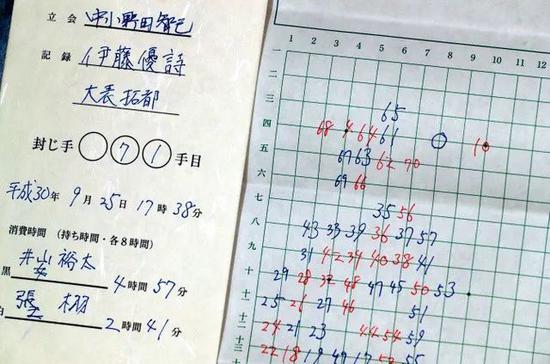 立会 中小野田智己
記録 伊藤優詩
大表拓都
封じ手 ○ 7 1 手目
平成30年 9月 25日 17時 38分
消費時間（持ち時間・各8時間）
井山裕太
黒 4時間 57分
張 栩
白 2時間 41分
1 2 3 4 5 6 7 8 9 10 11 12
一
二
三 65
四 68 4 64 61
五 67 63 62 70
六 69 66
七 35 56
八 43 33 39 36 37 57
九 31 42 34 40 38 41
十 29 28 32 48 47 45 50 53
十一 25 26 27 46 51
十二 24 21 23 44 54 59
十三 22 18 19